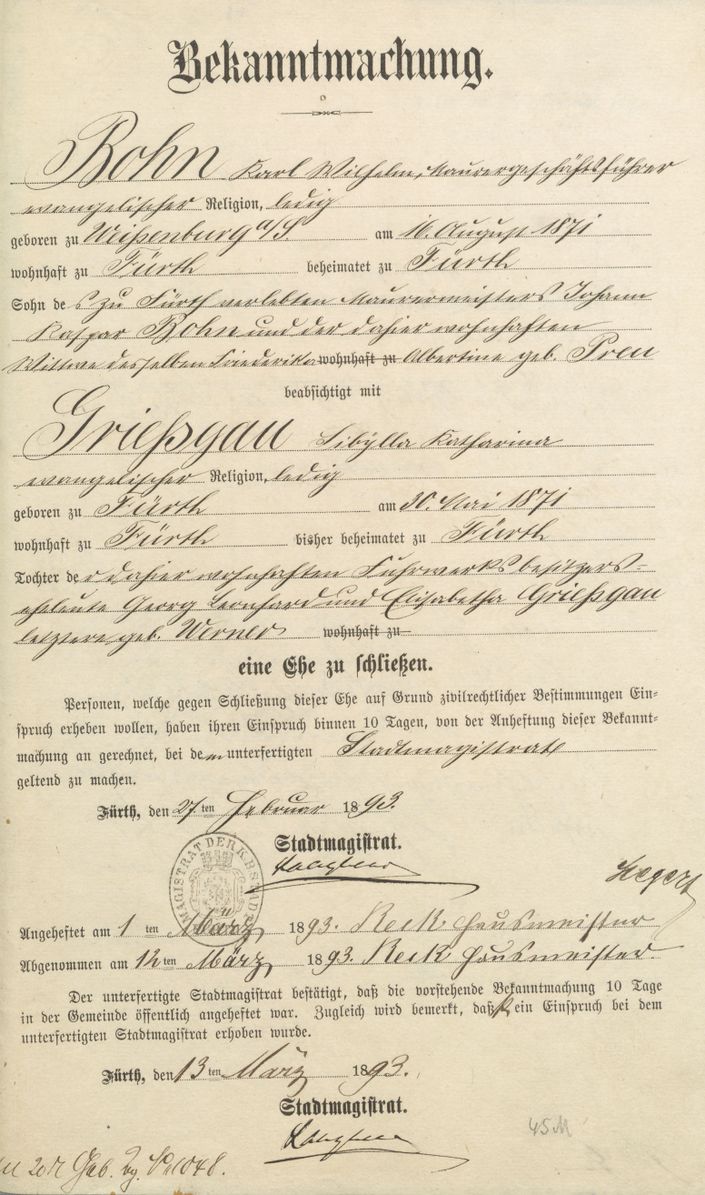 Bekanntmachung.
Bohn Karl Wilhelm, Maurergeschäftsführer
evangelischer Religion, ledig
geboren zu Weißenburg a/S. am 16. August 1871
wohnhaft zu Fürth beheimatet zu Fürth
Sohn des zu Fürth verlebten Maurermeisters Johann
Kaspar Bohn und der dahier wohnhaften
Wittwe desselben Friederika wohnhaft zu Albertine geb. Preu
beabsichtigt mit
Grießgau Sibÿlla Katharina
evangelischer Religion, ledig
geboren zu Fürth am 30. Mai 1871
wohnhaft zu Fürth bisher beheimatet zu Fürth
Tochter der dahier wohnhaften Fuhrwerksbesitzers-
eheleute Georg Leonhard und Elisabetha Grießgau
letztere geb. Werner wohnhaft zu
eine Ehe zu schließen.
Personen, welche gegen Schließung dieser Ehe auf Grund zivilrechtlicher Bestimmungen Ein-
spruch erheben wollen, haben ihren Einspruch binnen 10 Tagen, von der Anheftung dieser Bekannt-
machung an gerechnet, bei dem unterfertigten Stadtmagistrate
geltend zu machen.
Fürth, den 27ten Februar 1893.
Stadtmagistrat.
MAGISTRAT DER K.B. STADT FÜRTH
Hegert
Angeheftet am 1ten März 1893. Reck Hausmeister
Abgenommen am 12ten März 1893. Reck Hausmeister.
Der unterfertigte Stadtmagistrat bestätigt, daß die vorstehende Bekanntmachung 10 Tage
in der Gemeinde öffentlich angeheftet war. Zugleich wird bemerkt, daß kein Einspruch bei dem
unterfertigten Stadtmagistrat erhoben wurde.
Fürth, den 13ten März 1893.
Stadtmagistrat.
45 M
20 ₰ Geb.